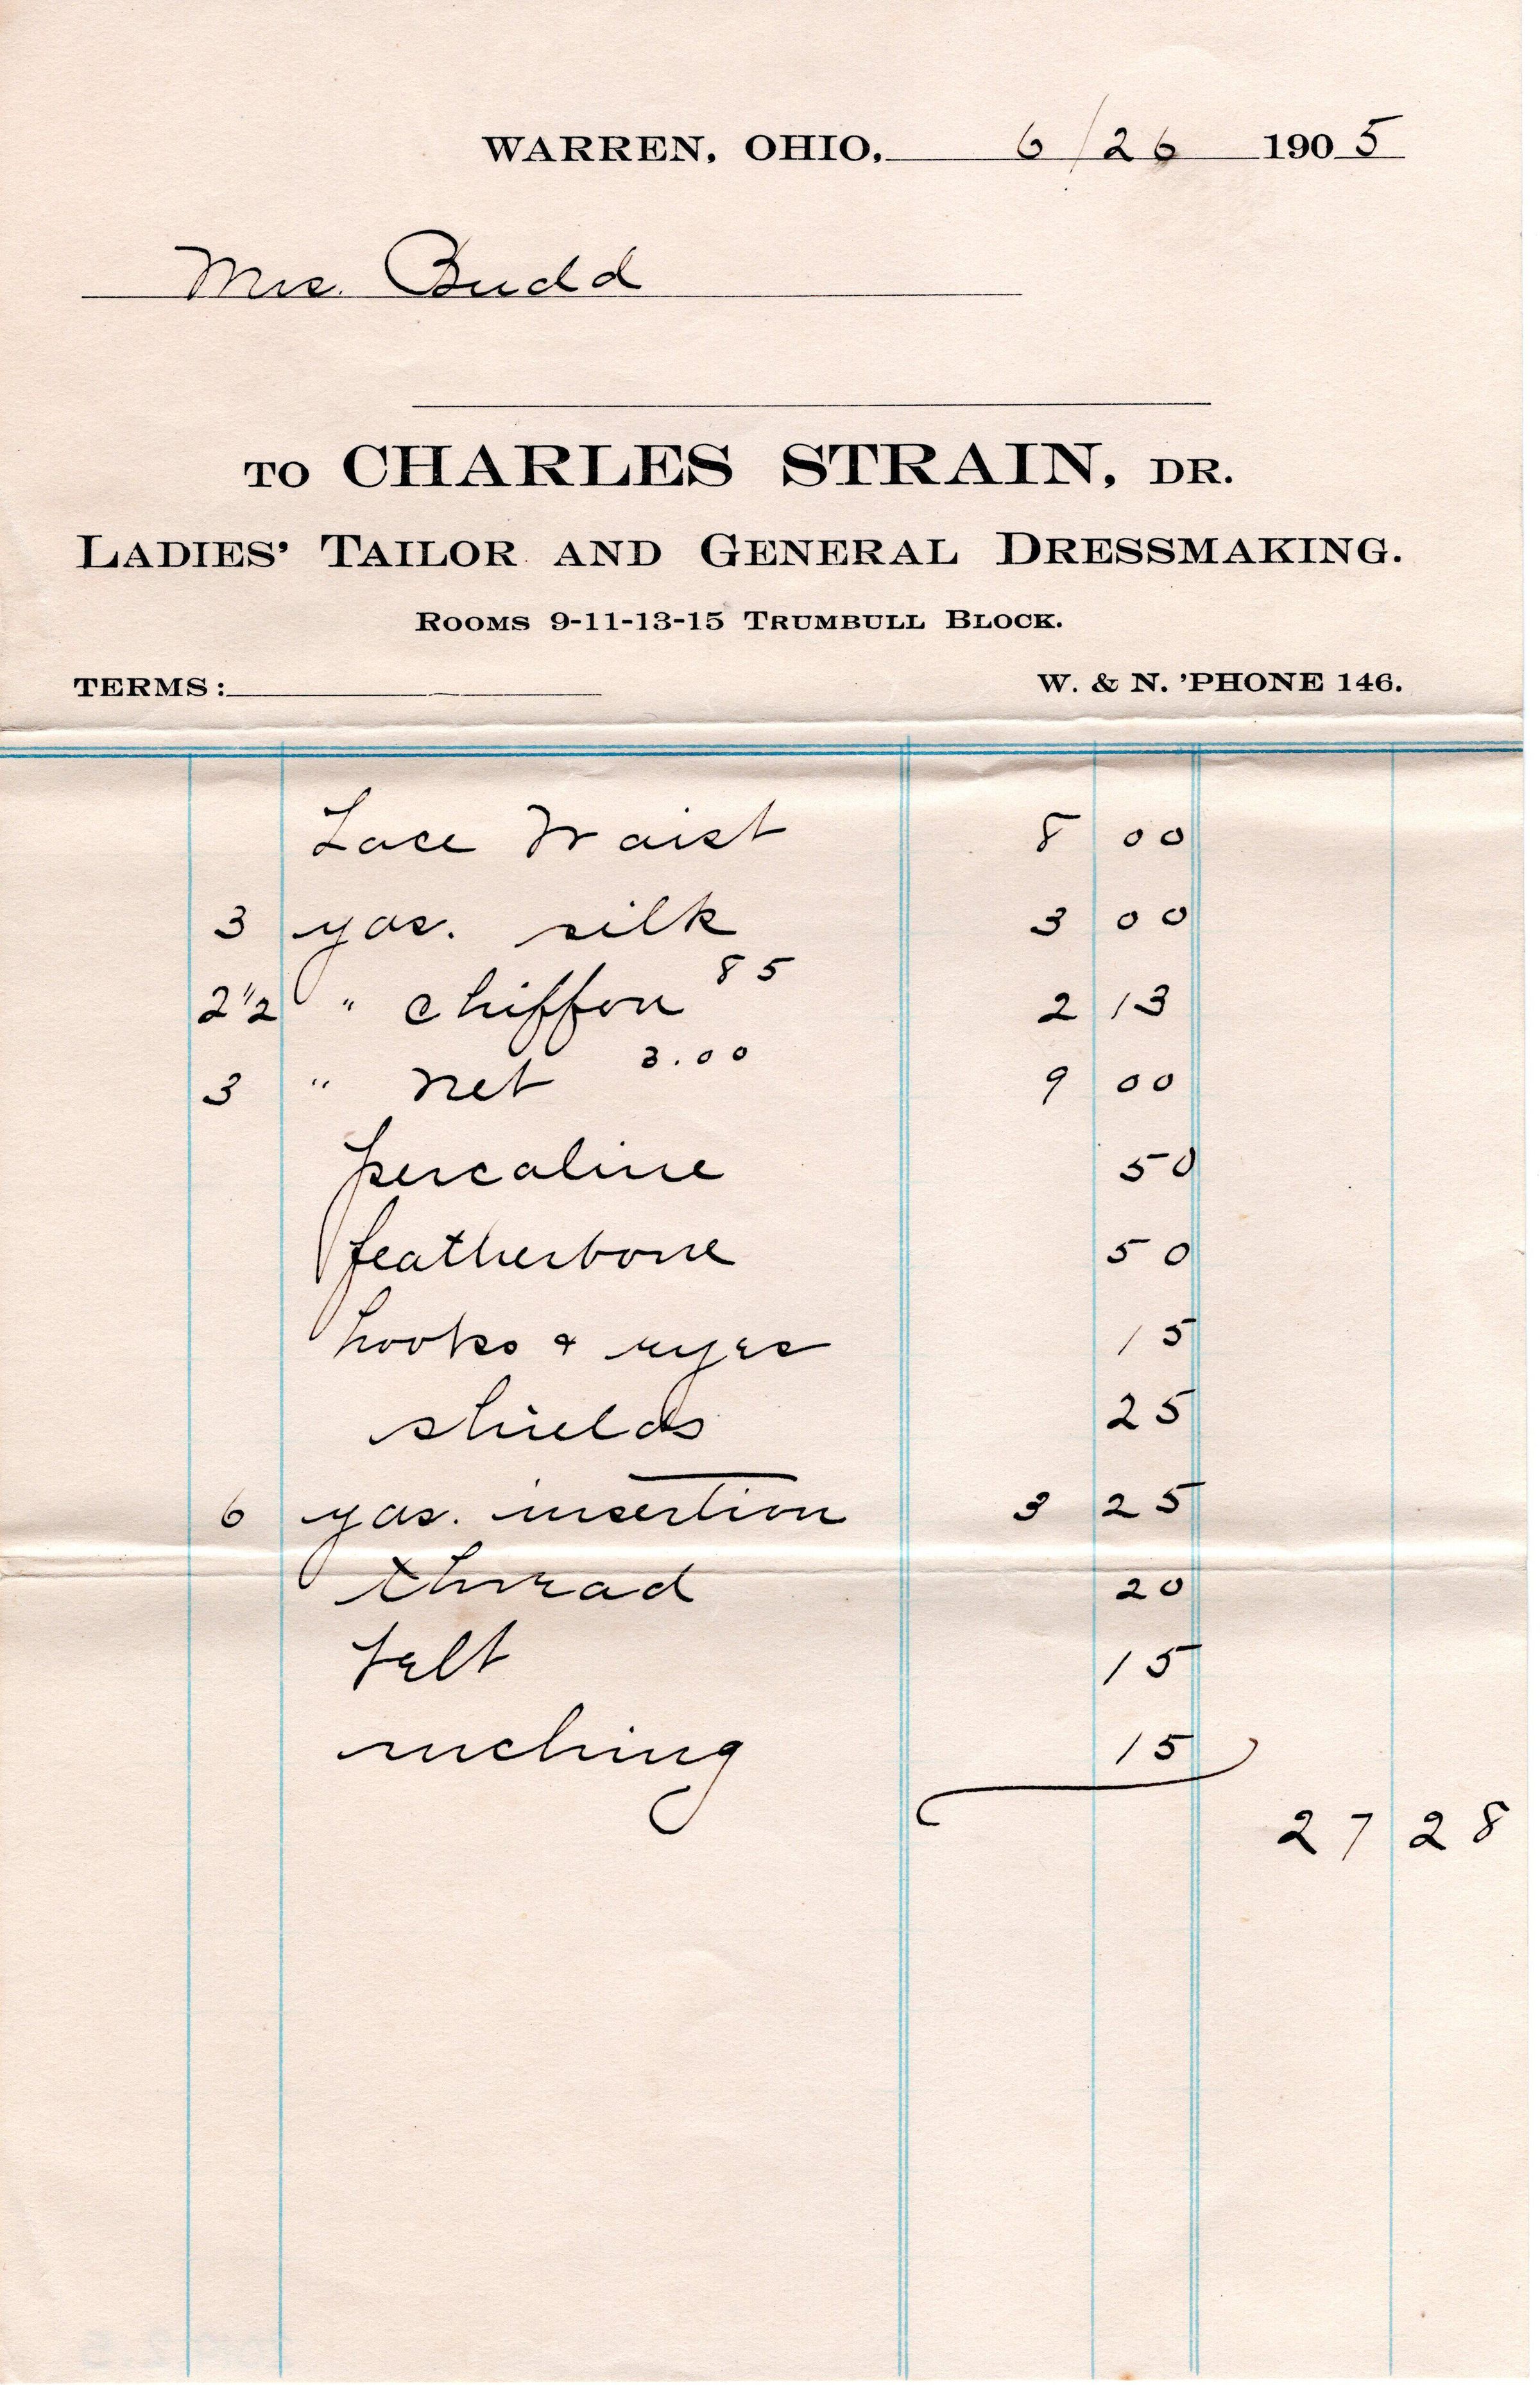 WARREN, OHIO, 6/26 1905
Mrs. Budd
TO CHARLES STRAIN, DR.
LADIES' TAILOR AND GENERAL DRESSMAKING.
ROOMS 9-11-13-15 TRUMBULL BLOCK.
TERMS: W. & N. 'PHONE 146.
Lace Waist 8 00
3 yds. silk 3 00
2 1/2 " chiffon 85 2 13
3 " net 3.00 9 00
percaline 50
featherbone 50
hooks & eyes 15
shields 25
6 yds. insertion 3 25
thread 20
15
ruching 15
27 28